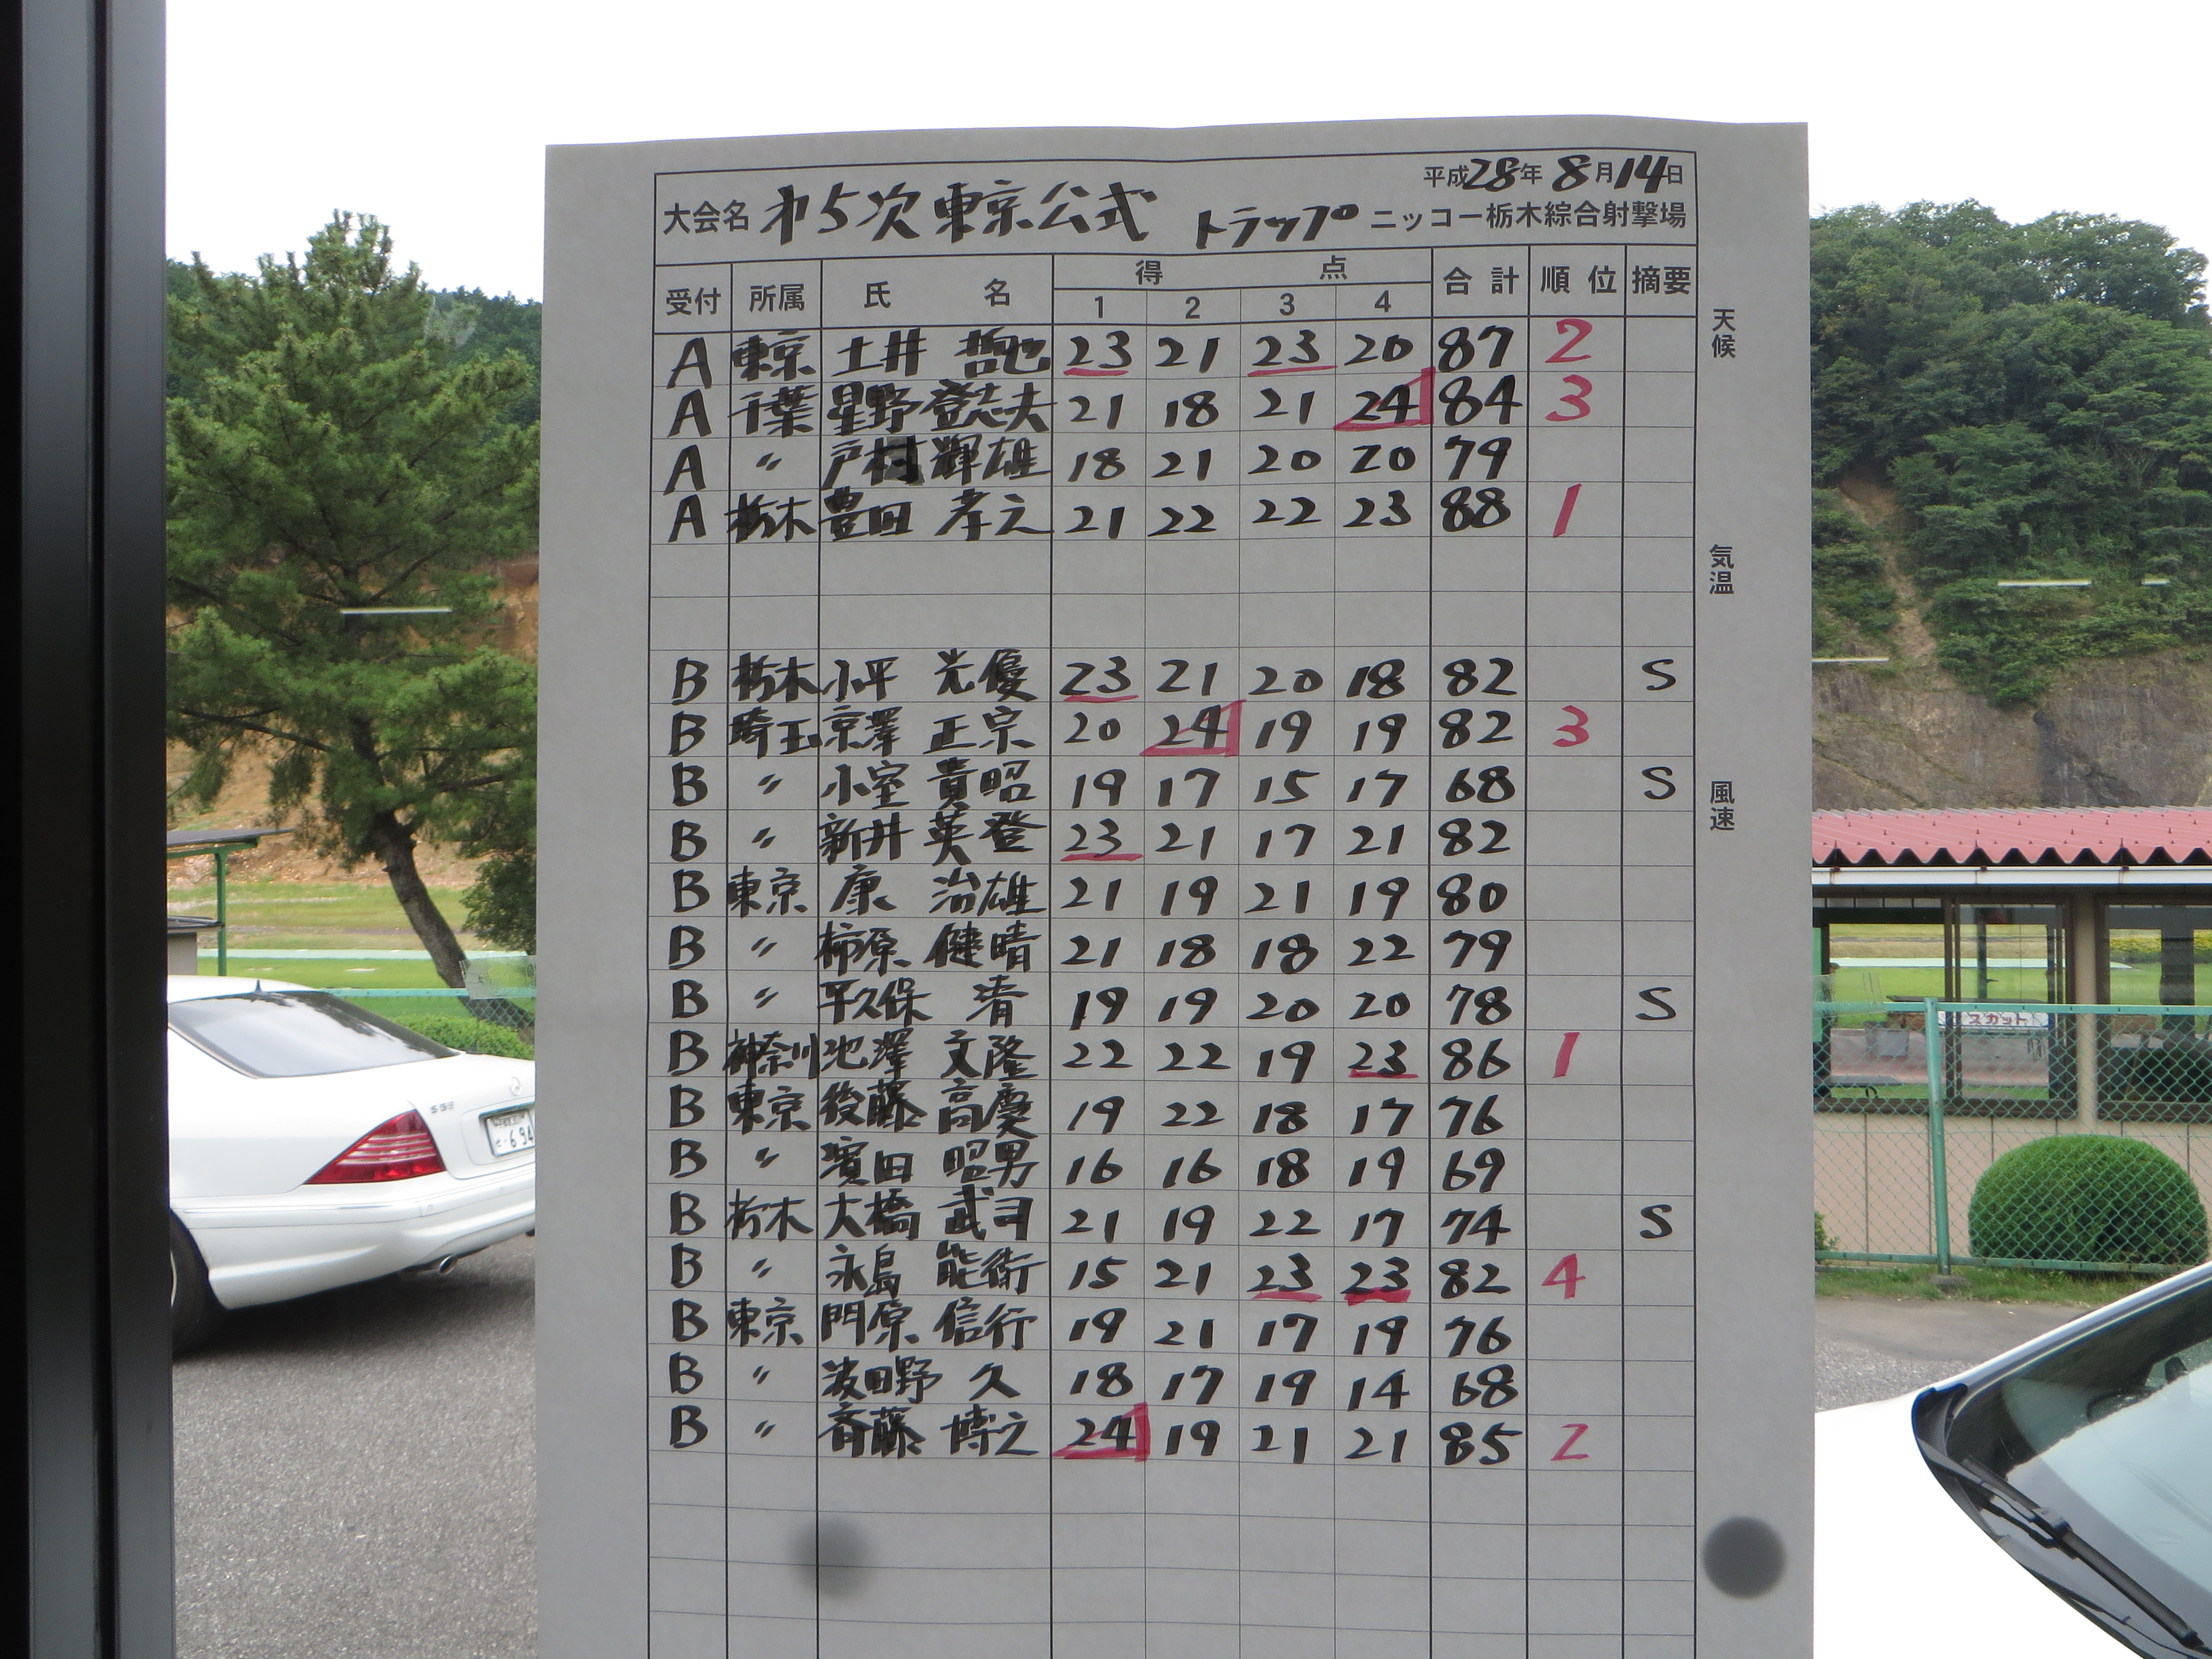 平成28年8月14日
大会名 オ5次東京公式 トラップ ニッコー栃木綜合射撃場
受付 所属 氏名 得点 合計 順位 摘要
1 2 3 4
A 東京 土井 哲也 23 21 23 20 87 2
A 千葉 星野 登志夫 21 18 21 24 84 3
A 〃 戸村 輝雄 18 21 20 20 79
A 栃木 豊田 孝之 21 22 22 23 88 1
B 栃木 小平 光優 23 21 20 18 82 S
B 埼玉 京澤 正宗 20 24 19 19 82 3
B 〃 小室 貴昭 19 17 15 17 68 S
B 〃 新井 英登 23 21 17 21 82
B 東京 康 治雄 21 19 21 19 80
B 〃 柿原 健晴 21 18 18 22 79
B 〃 平久保 清 19 19 20 20 78 S
B 神奈川 池澤 文隆 22 22 19 23 86 1
B 東京 後藤 高慶 19 22 18 17 76
B 〃 濱田 昭男 16 16 18 19 69
B 栃木 大橋 武司 21 19 22 17 74 S
B 〃 永島 能衛 15 21 23 23 82 4
B 東京 門原 信行 19 21 17 19 76
B 〃 波田野 久 18 17 19 14 68
B 〃 斉藤 博之 24 19 21 21 85 2
天候
気温
風速
スカット